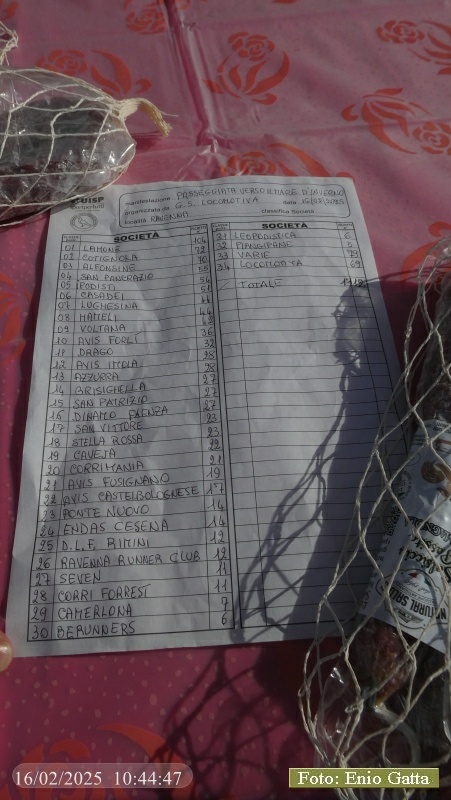 UISP
sportpertutti
manifestazione PASSEGGIATA VERSO IL MARE D'INVERNO
organizzata da G.S. LOCOMOTIVA data 16/02/2025
località RAVENNA classifica Società
SOCIETÀ
01 LAMONE 104
02 COTIGNOLA 72
03 ALFONSINE 70
04 SAN PANCRAZIO 55
05 PODISTI 54
06 CASADEI 51
07 LUGHESINA
08 MATTELI
09 VOLTANA
10 AVIS FORLÌ 36
11 DRAGO 32
12 AVIS IMOLA 28
13 AZZURRA 28
14 BRISIGHELLA 27
15 SAN PATRIZIO 27
16 DINAMO FAENZA 27
17 SAN VITTORE 23
18 STELLA ROSSA 23
19 CAVEJA 22
20 CORRIMANIA 21
21 AVIS FUSIGNANO 19
22 AVIS CASTELBOLOGNESE 17
23 PONTE NUOVO 14
24 ENDAS CESENA 14
25 D.L.F. RIMINI 12
26 RAVENNA RUNNER CLUB 12
27 SEVEN 11
28 CORRI FORREST 11
29 CAMERLONA 7
30 BERUNNERS 6
SOCIETÀ
31 LEOPODISTICA 6
32 PIANGIPANE
33 VARIE
34 LOCOMOTIVA 69
TOTALE
NATURAL SALU
16/02/2025 10:44:47
Foto: Enio Gatta